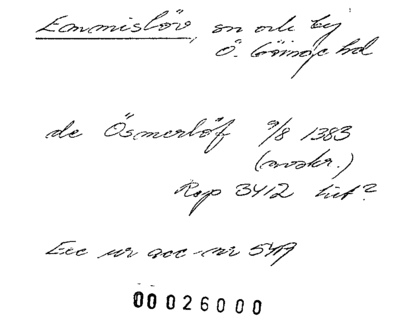 Emmislöv, sn och by
Ö. Göinge hd
de Ösmerlöf 9/8 1383
(avskr.)
Rap 3412 tit?
Exc ur acc-nr 549
00026000